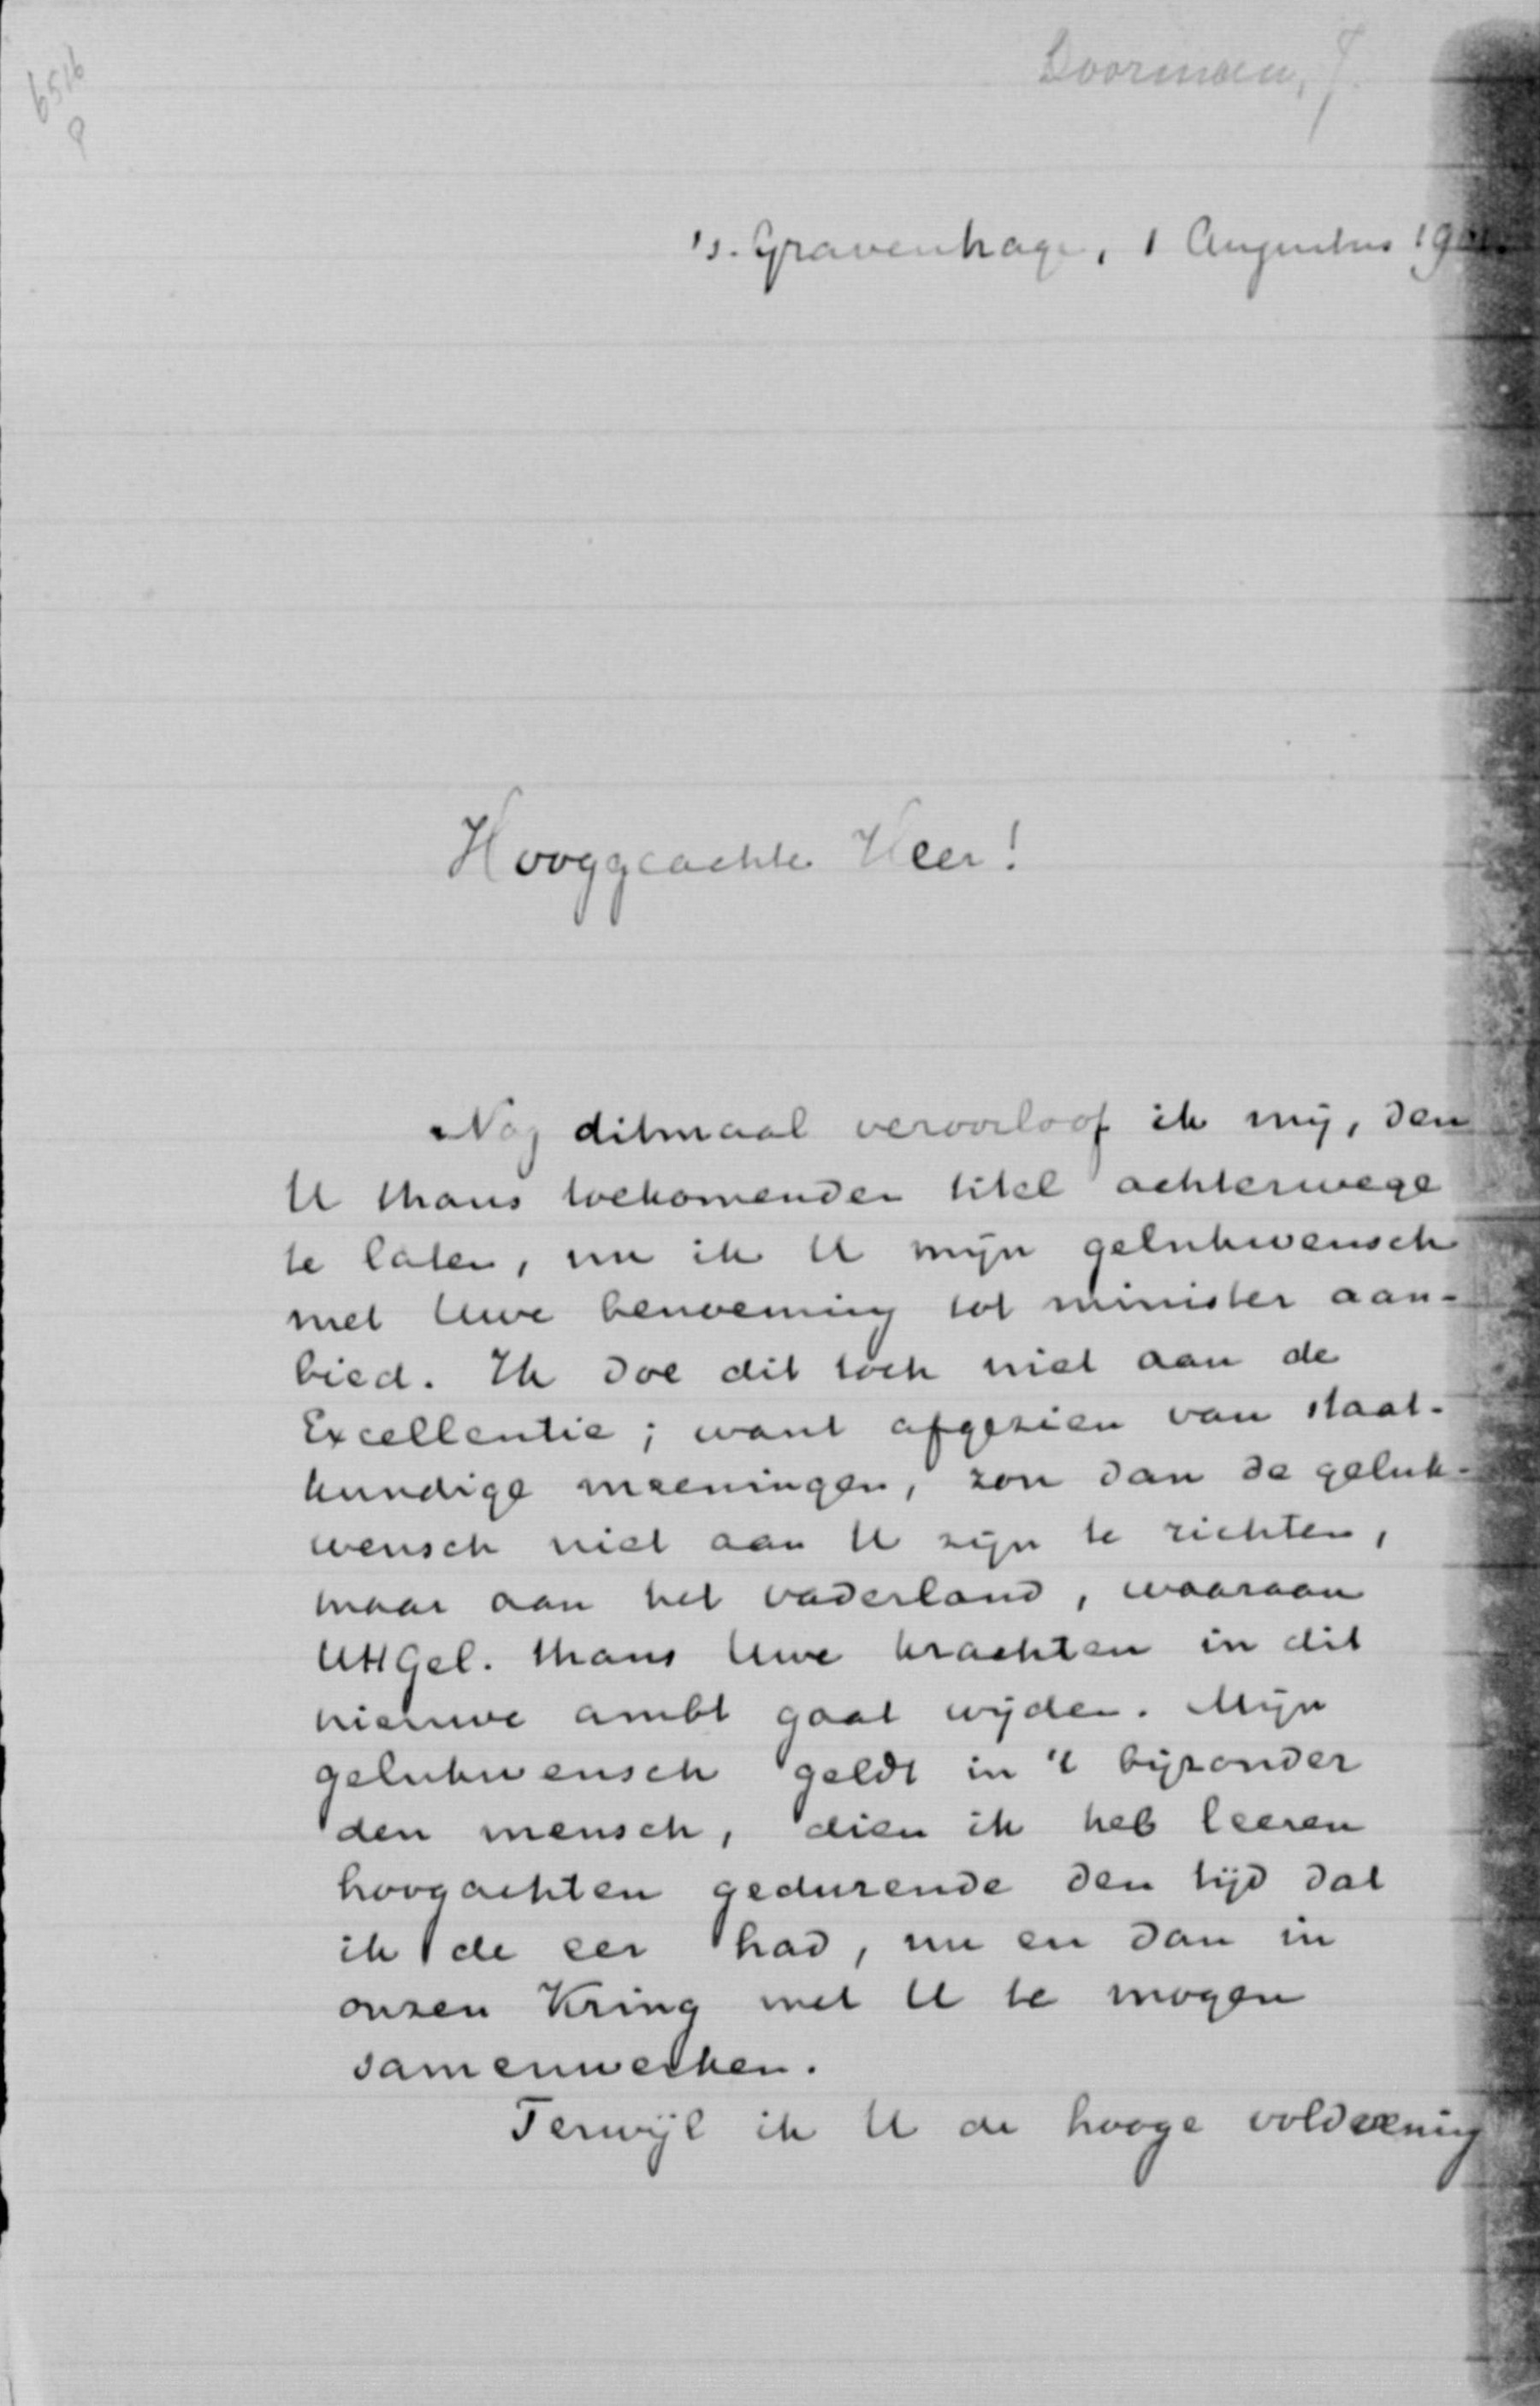 6516
9
Doorman, J.
's-Gravenhage, 1 Augustus 1901.
Hooggeachte Heer!
Nog ditmaal veroorloof ik mij, den
U thans toekomenden titel achterwege
te laten, nu ik U mijn gelukwensch
met Uwe benoeming tot minister aan-
bied. Ik doe dit toch niet aan de
Excellentie; want afgezien van staat-
kundige meeningen, zou dan de geluk-
wensch niet aan U zijn te richten,
maar aan het vaderland, waaraan
UHGel. thans Uwe krachten in dit
nieuwe ambt gaat wijden. Mijn
gelukwensch geldt in 't bijzonder
den mensch, dien ik heb leeren
hoogachten gedurende den tijd dat
ik de eer had, nu en dan in
onzen Kring met U te mogen
samenwerken.
Terwijl ik U de hooge voldoening